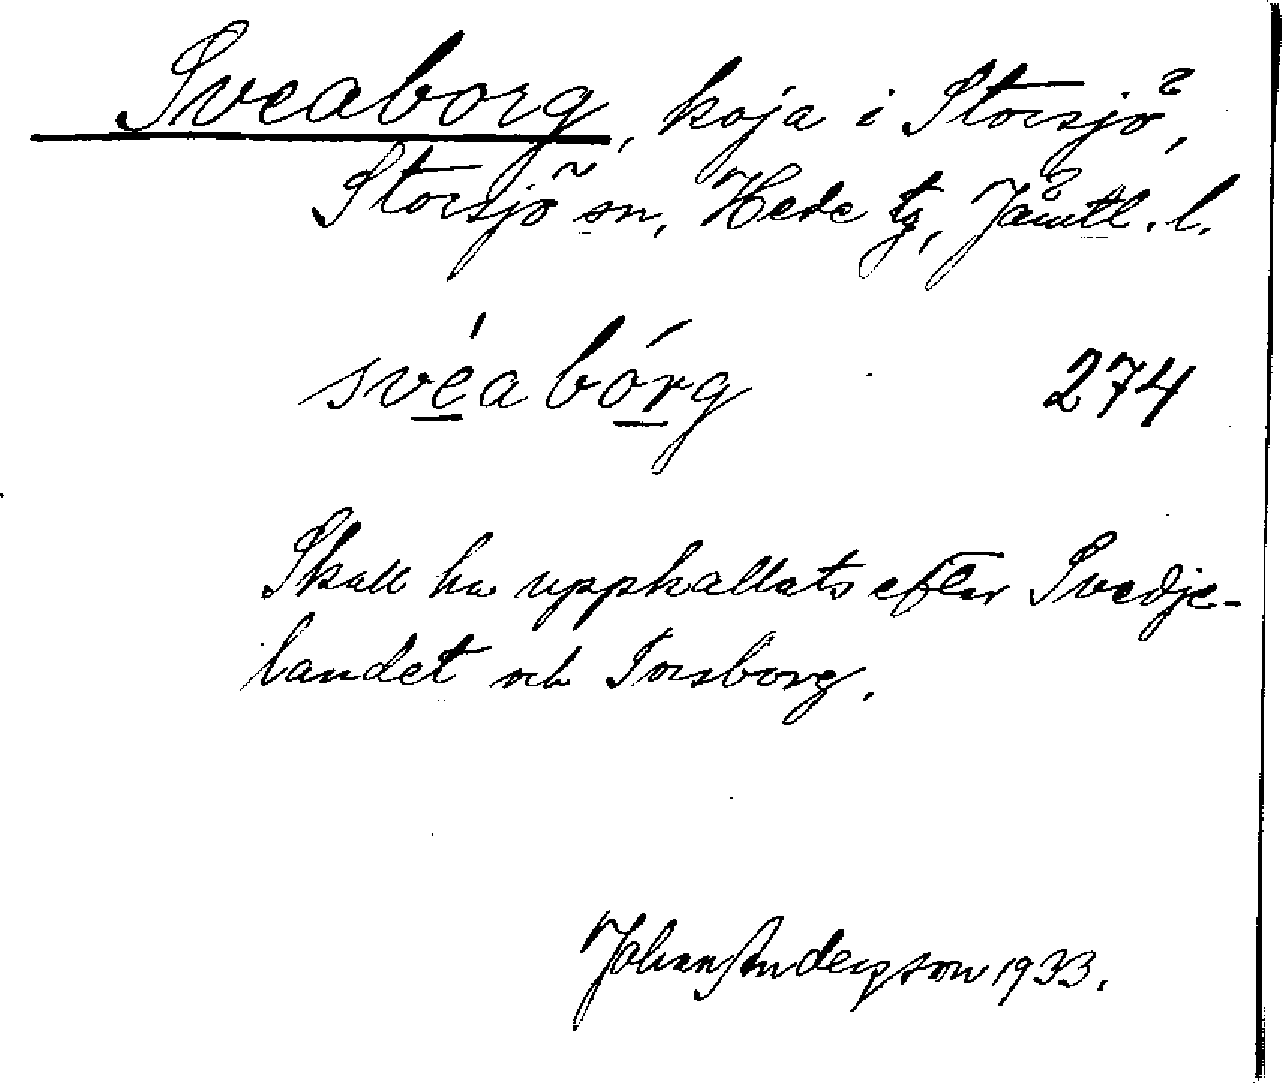 Sveaborg, koja i Storsjö,
Storsjö sn, Hede tg, Jämtl. l.
svéabórg 274
Skall ha uppkallats efter Svedje-
landet och Torsborg.
Johan Anderson 1933.